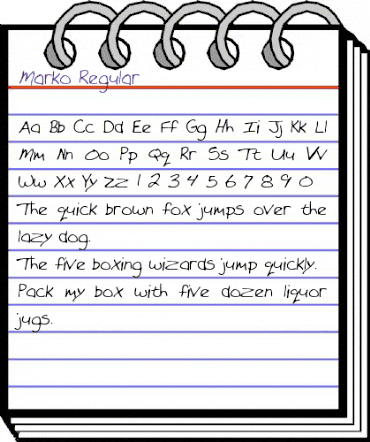 Marko Regular
Aa Bb Cc Dd Ee Ff Gg Hh Ii Jj Kk Ll
Mm Nn Oo Pp Qq Rr Ss Tt Uu Vv
Ww Xx Yy Zz 1 2 3 4 5 6 7 8 9 0
The quick brown fox jumps over the
lazy dog.
The five boxing wizards jump quickly.
Pack my box with five dozen liquor
jugs.